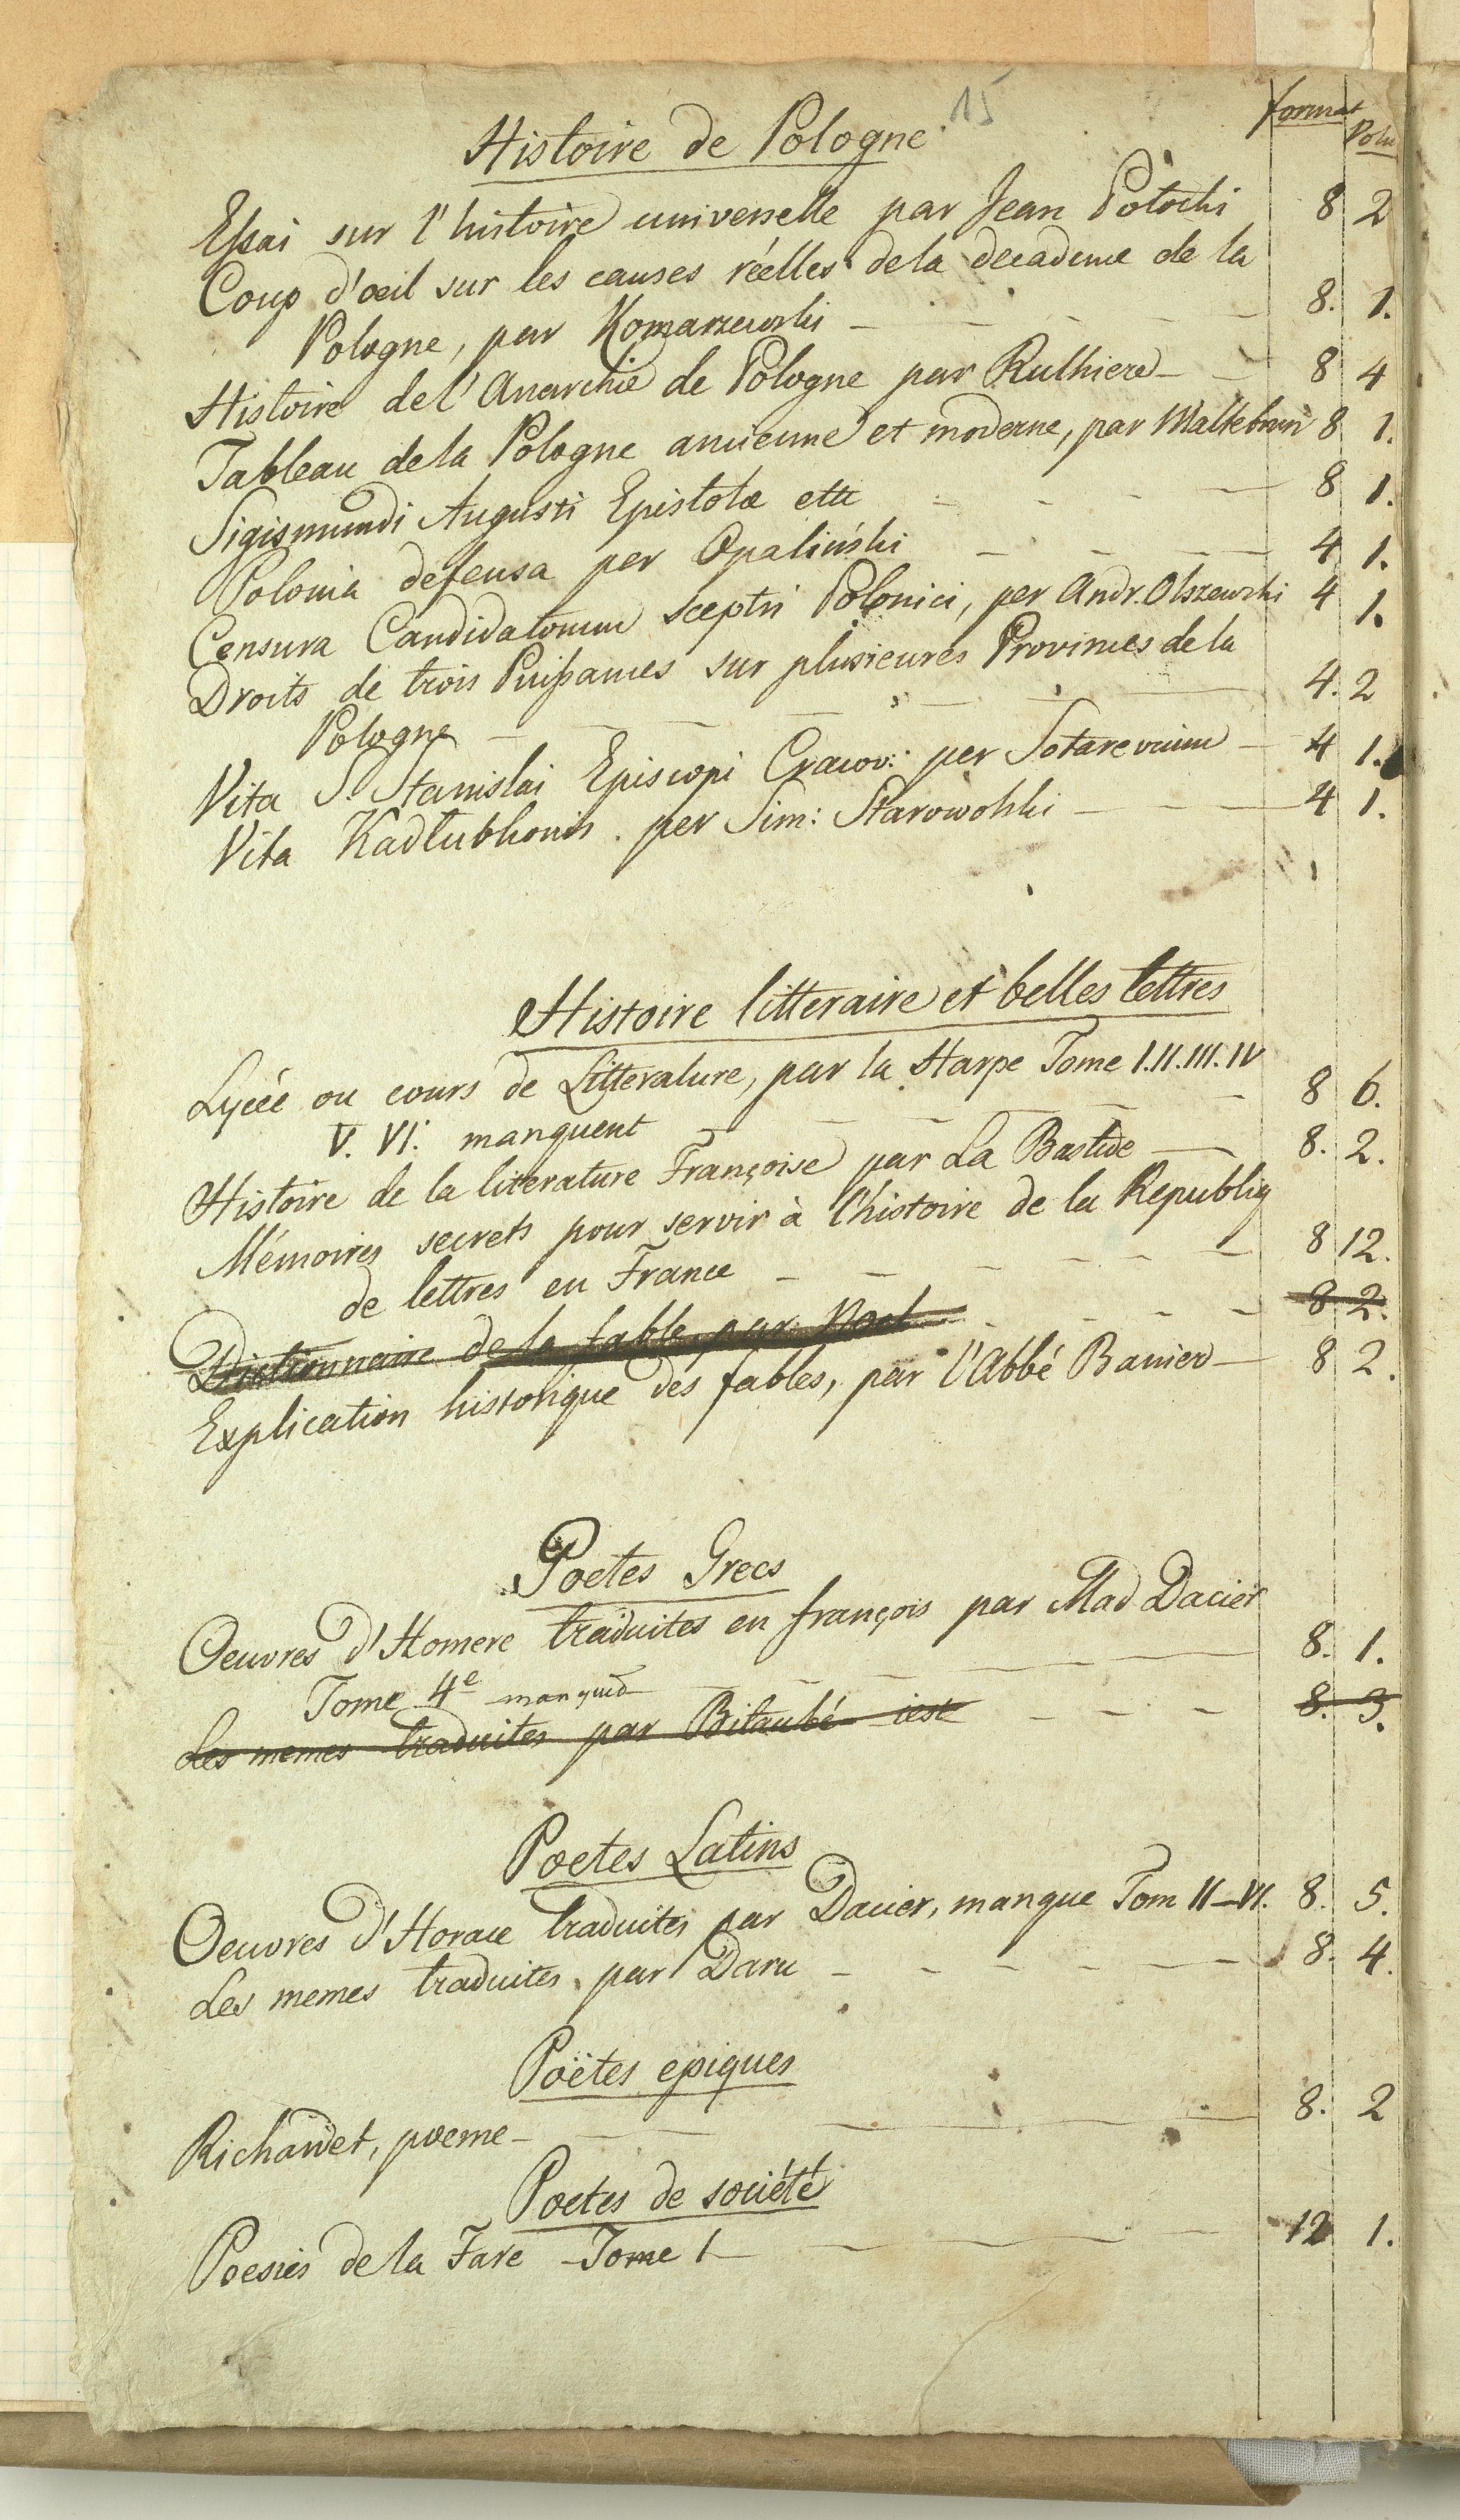 15
format Volu
Histoire de Pologne
Essai sur l'histoire universelle par Jean Potocki 8 2
Coup d'œil sur les causes réelles de la decadence de la
Pologne, par Komarzewski - - - - 8. 1.
Histoire de l'Anarchie de Pologne par Rulhiere - - 8 4
Tableau de la Pologne ancienne et moderne, par Maltebrun 8 1.
Sigismundi Augusti Epistolæ ettc - - - - 8 1.
Polonia defensa per Opaliński - - - - 4 1.
Censura Candidatorum sceptri Polonici, per Andr. Olszewski 4 1.
Droits de trois Puissances sur plusieures Provinces de la
Pologne - - - - - - 4. 2
Vita S. Stanislai Episcopi Cracov: per - 4 1.
Vita Kadłubkonis. per Sim: Starowolski - - - 4 1.
Histoire litteraire et belles lettres
Lycée ou cours de Litterature, par la Harpe Tome I.II.III.IV
V. VI. manquent - - - - - 8 6.
Histoire de la literature Françoise par La Bastide - 8. 2.
Mémoires secrets pour servir à l'histoire de la Republiq
de lettres en France - - - - - - 8 12.
Dictionnaire de la fable par Noel - - - - 8 2.
Explication historique des fables, par l'Abbé Banier - 8 2.
Poetes Grecs
Oeuvres d'Homere traduites en françois par Mad Dacier
Tome 4e manque - - - - - - 8. 1.
Les memes traduites par Bitaubé - - - 8. 3.
Poetes Latins
Oeuvres d'Horace traduites par Dacier, manque Tom II-VI. 8. 5.
Les memes traduites par Daru - - - - - 8. 4.
Poëtes epiques
Richardet, poeme - - - - - - 8. 2
Poetes de société
Poesies de la Fare - Tome 1 - - - - 12 1.